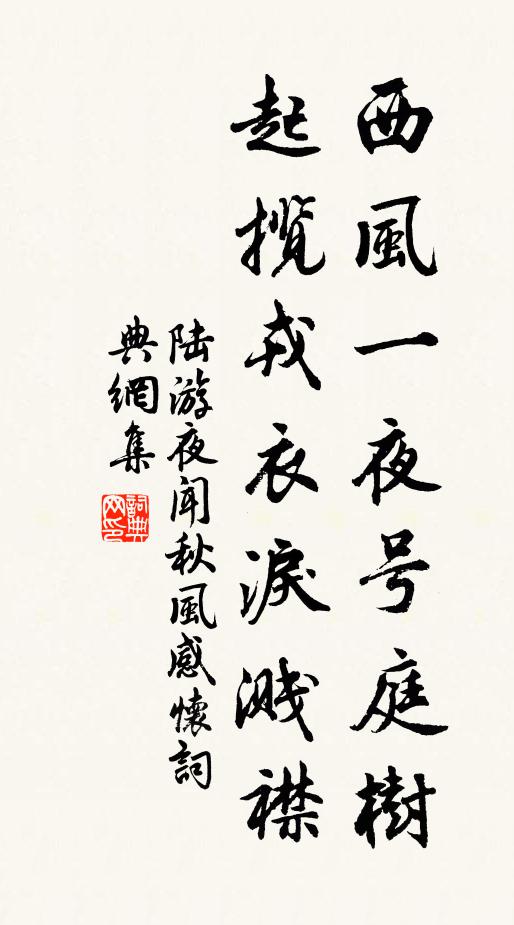 西風一夜号庭樹
起攬戎衣淚濺襟
陆游夜闻秋風感懷詞
典網集
詞典网印